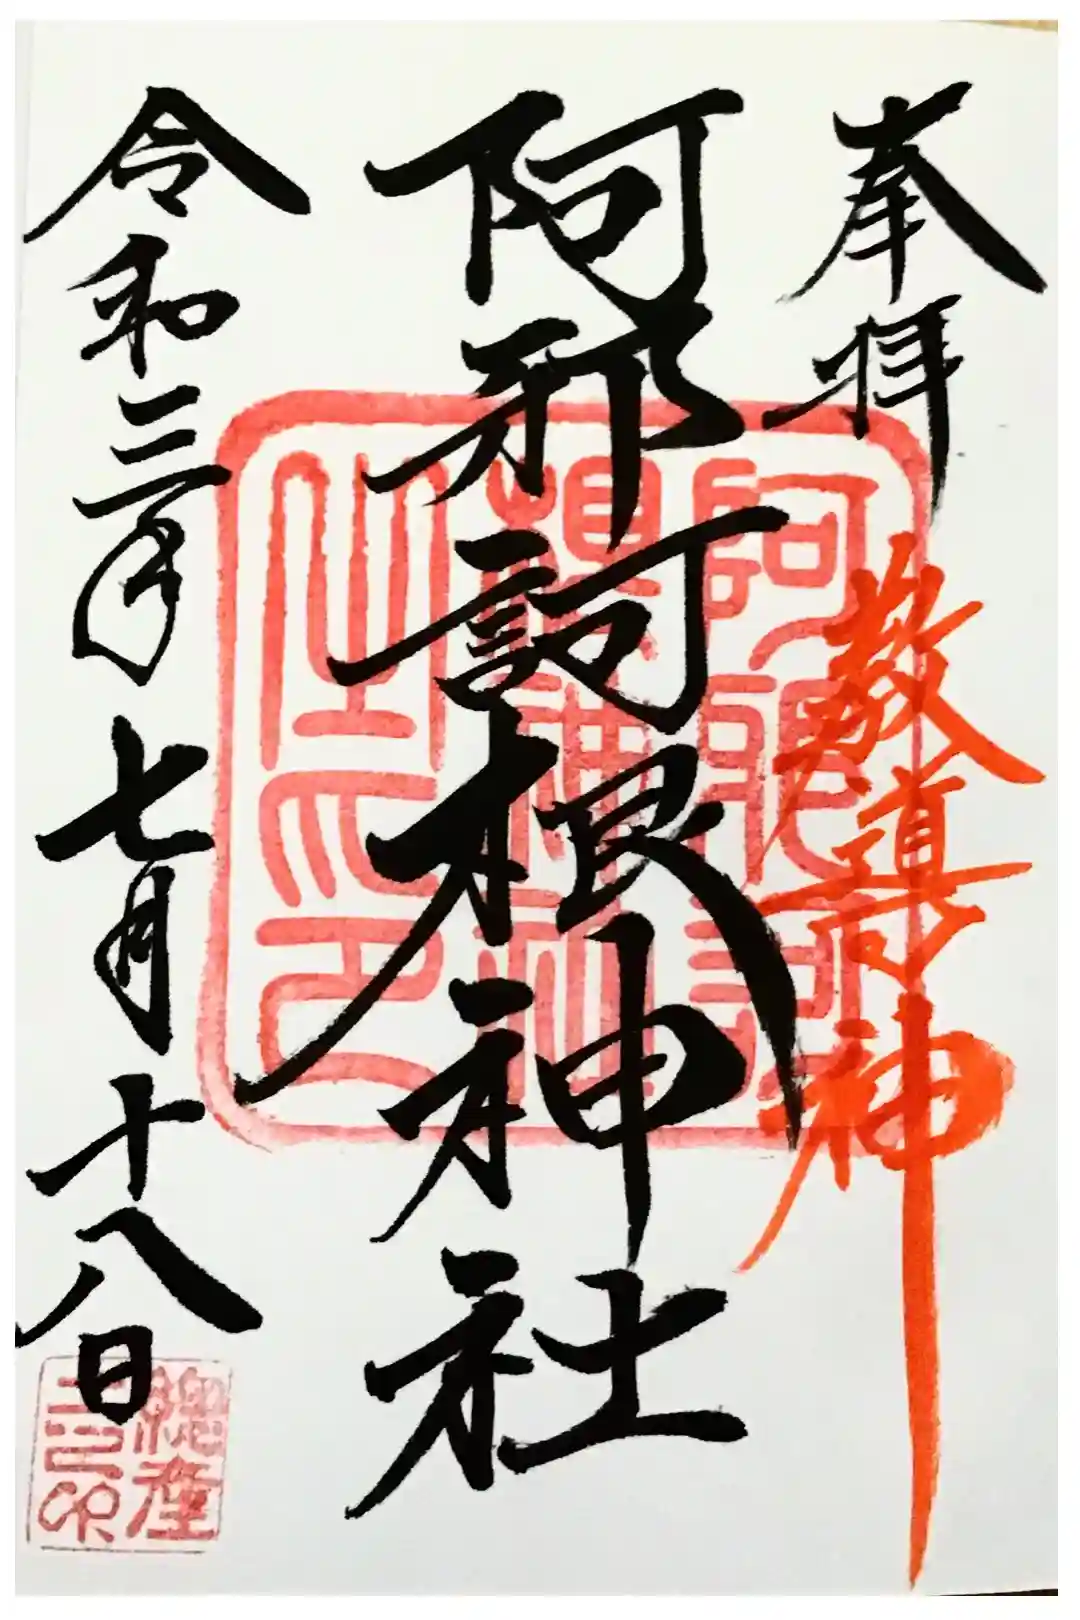 奉拝
導神
阿邪訶根神社
令和三年七月十八日
阿邪訶
根神社
之印
總產
土之印